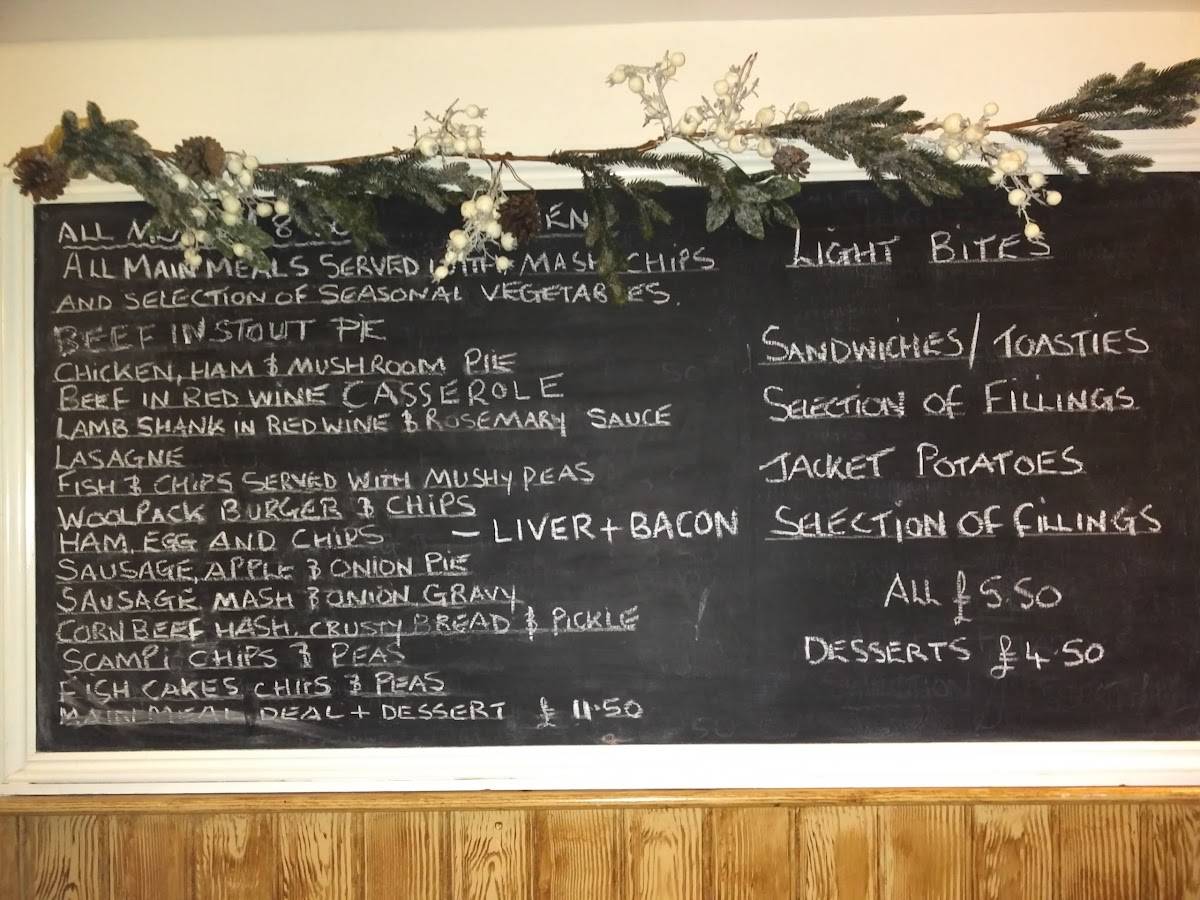 ALL
ALL MAIN MEALS SERVED WITH MASH CHIPS
AND SELECTION OF SEASONAL VEGETABLES.
BEEF IN STOUT PIE
CHICKEN, HAM & MUSHROOM PIE
BEEF IN RED WINE CASSEROLE
LAMB SHANK IN RED WINE & ROSEMARY SAUCE
LASAGNE
FISH & CHIPS SERVED WITH MUSHY PEAS
WOOLPACK BURGER & CHIPS
HAM, EGG AND CHIPS – LIVER + BACON
SAUSAGE, APPLE & ONION PIE
SAUSAGE MASH & ONION GRAVY
CORN BEEF HASH, CRUSTY BREAD & PICKLE
SCAMPI CHIPS & PEAS
FISH CAKES CHIPS & PEAS
MAIN MEAL DEAL + DESSERT £11.50
LIGHT BITES
SANDWICHES/TOASTIES
SELECTION OF FILLINGS
JACKET POTATOES
SELECTION OF FILLINGS
ALL £5.50
DESSERTS £4.50